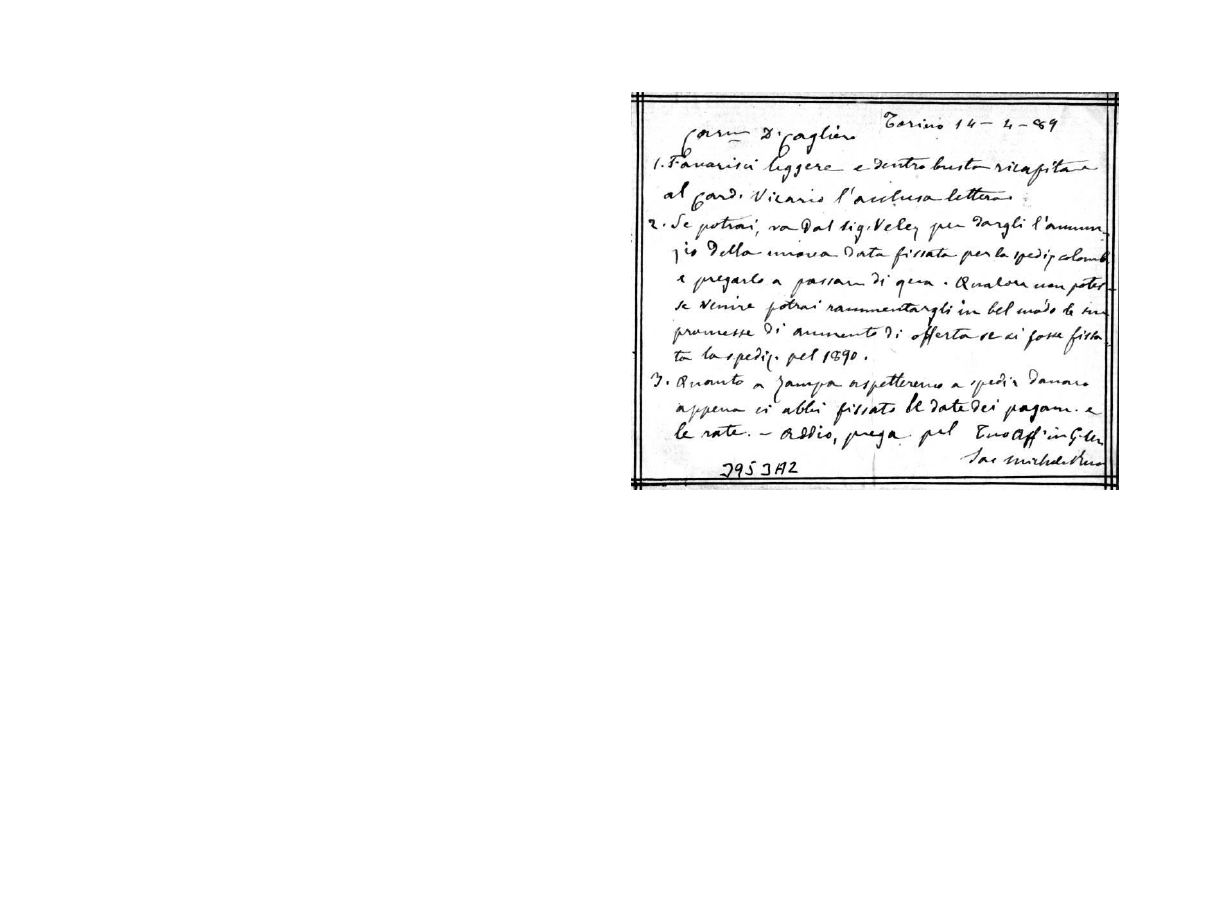 Torino 14-4-89
Carm D. Cagliero
1. Favorisci leggere e dentro busta ricapitare
al Card. Vicario l'acclusa lettera
2. Se potrai, va dal Sig. Velez per dargli l'annun-
zio della nuova data fissata per la spediz colomb
e pregarlo a passare di qua. Qualora non potes-
se venire potrai rammentargli in bel modo le sue
promesse di aumento di offerta se si fosse fissa-
ta la spediz. pel 1890.
3. Quanto a Zampa aspetteremo a spedir danaro
appena ci abbi fissato le date dei pagam. e
le rate. - Addio, prega pel Tuo Aff in G.
Sac Michele Rua
3953A2